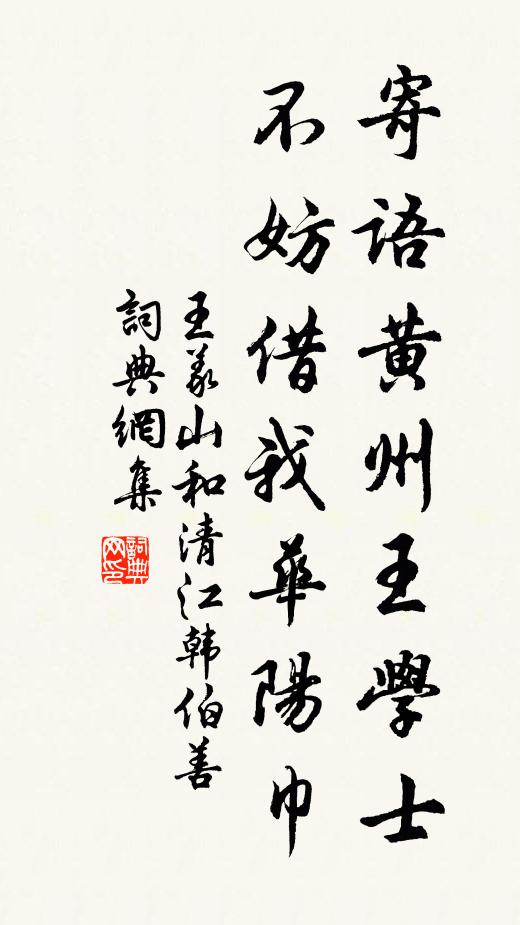 寄語黃州王學士
不妨借我華陽巾
王義山和清江韩伯善
詞典網集
詞典网印